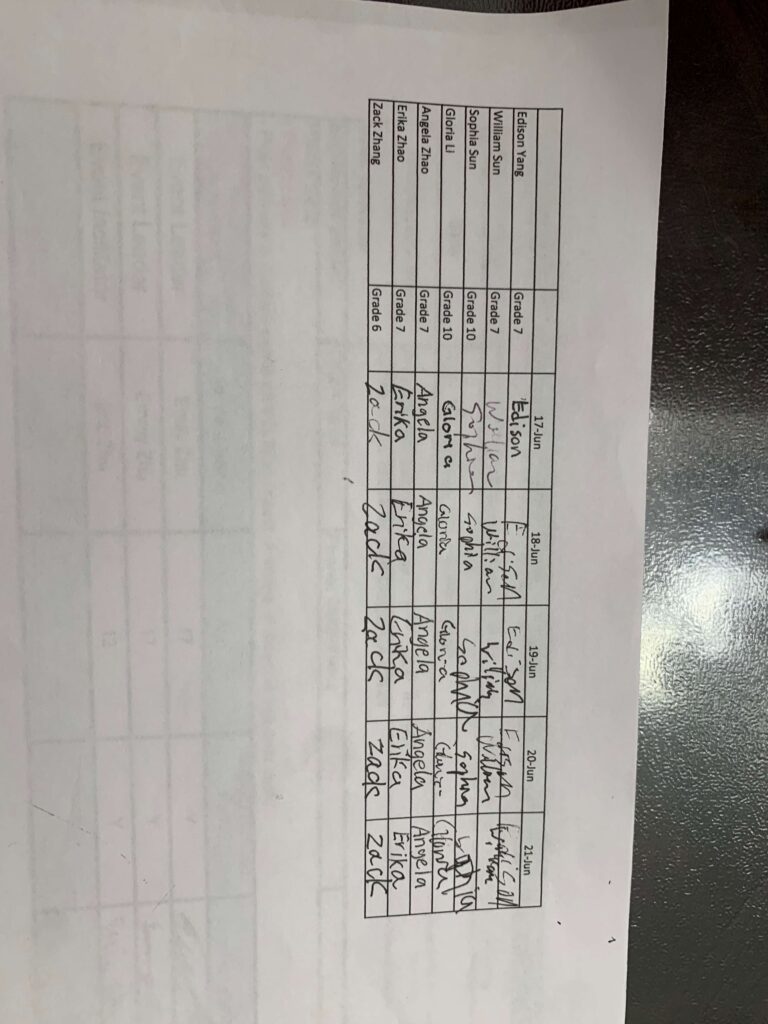 17-Jun 18-Jun 19-Jun 20-Jun 21-Jun
Edison Yang Grade 7 Edison Edison Edison Edison Edison
William Sun Grade 7 William William William William William
Sophia Sun Grade 10 Sophia Sophia Sophia Sophia Sophia
Gloria Li Grade 10 Gloria Gloria Gloria Gloria Gloria
Angela Zhao Grade 7 Angela Angela Angela Angela Angela
Erika Zhao Grade 7 Erika Erika Erika Erika Erika
Zack Zhang Grade 6 Zack Zack Zack Zack Zack